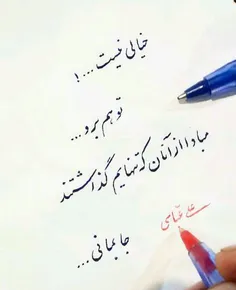 خیالی نیست...!
تو هم برو...
مبادا از آنان که تنهایم گذاشتند
جا بمانی...
علی عباسی